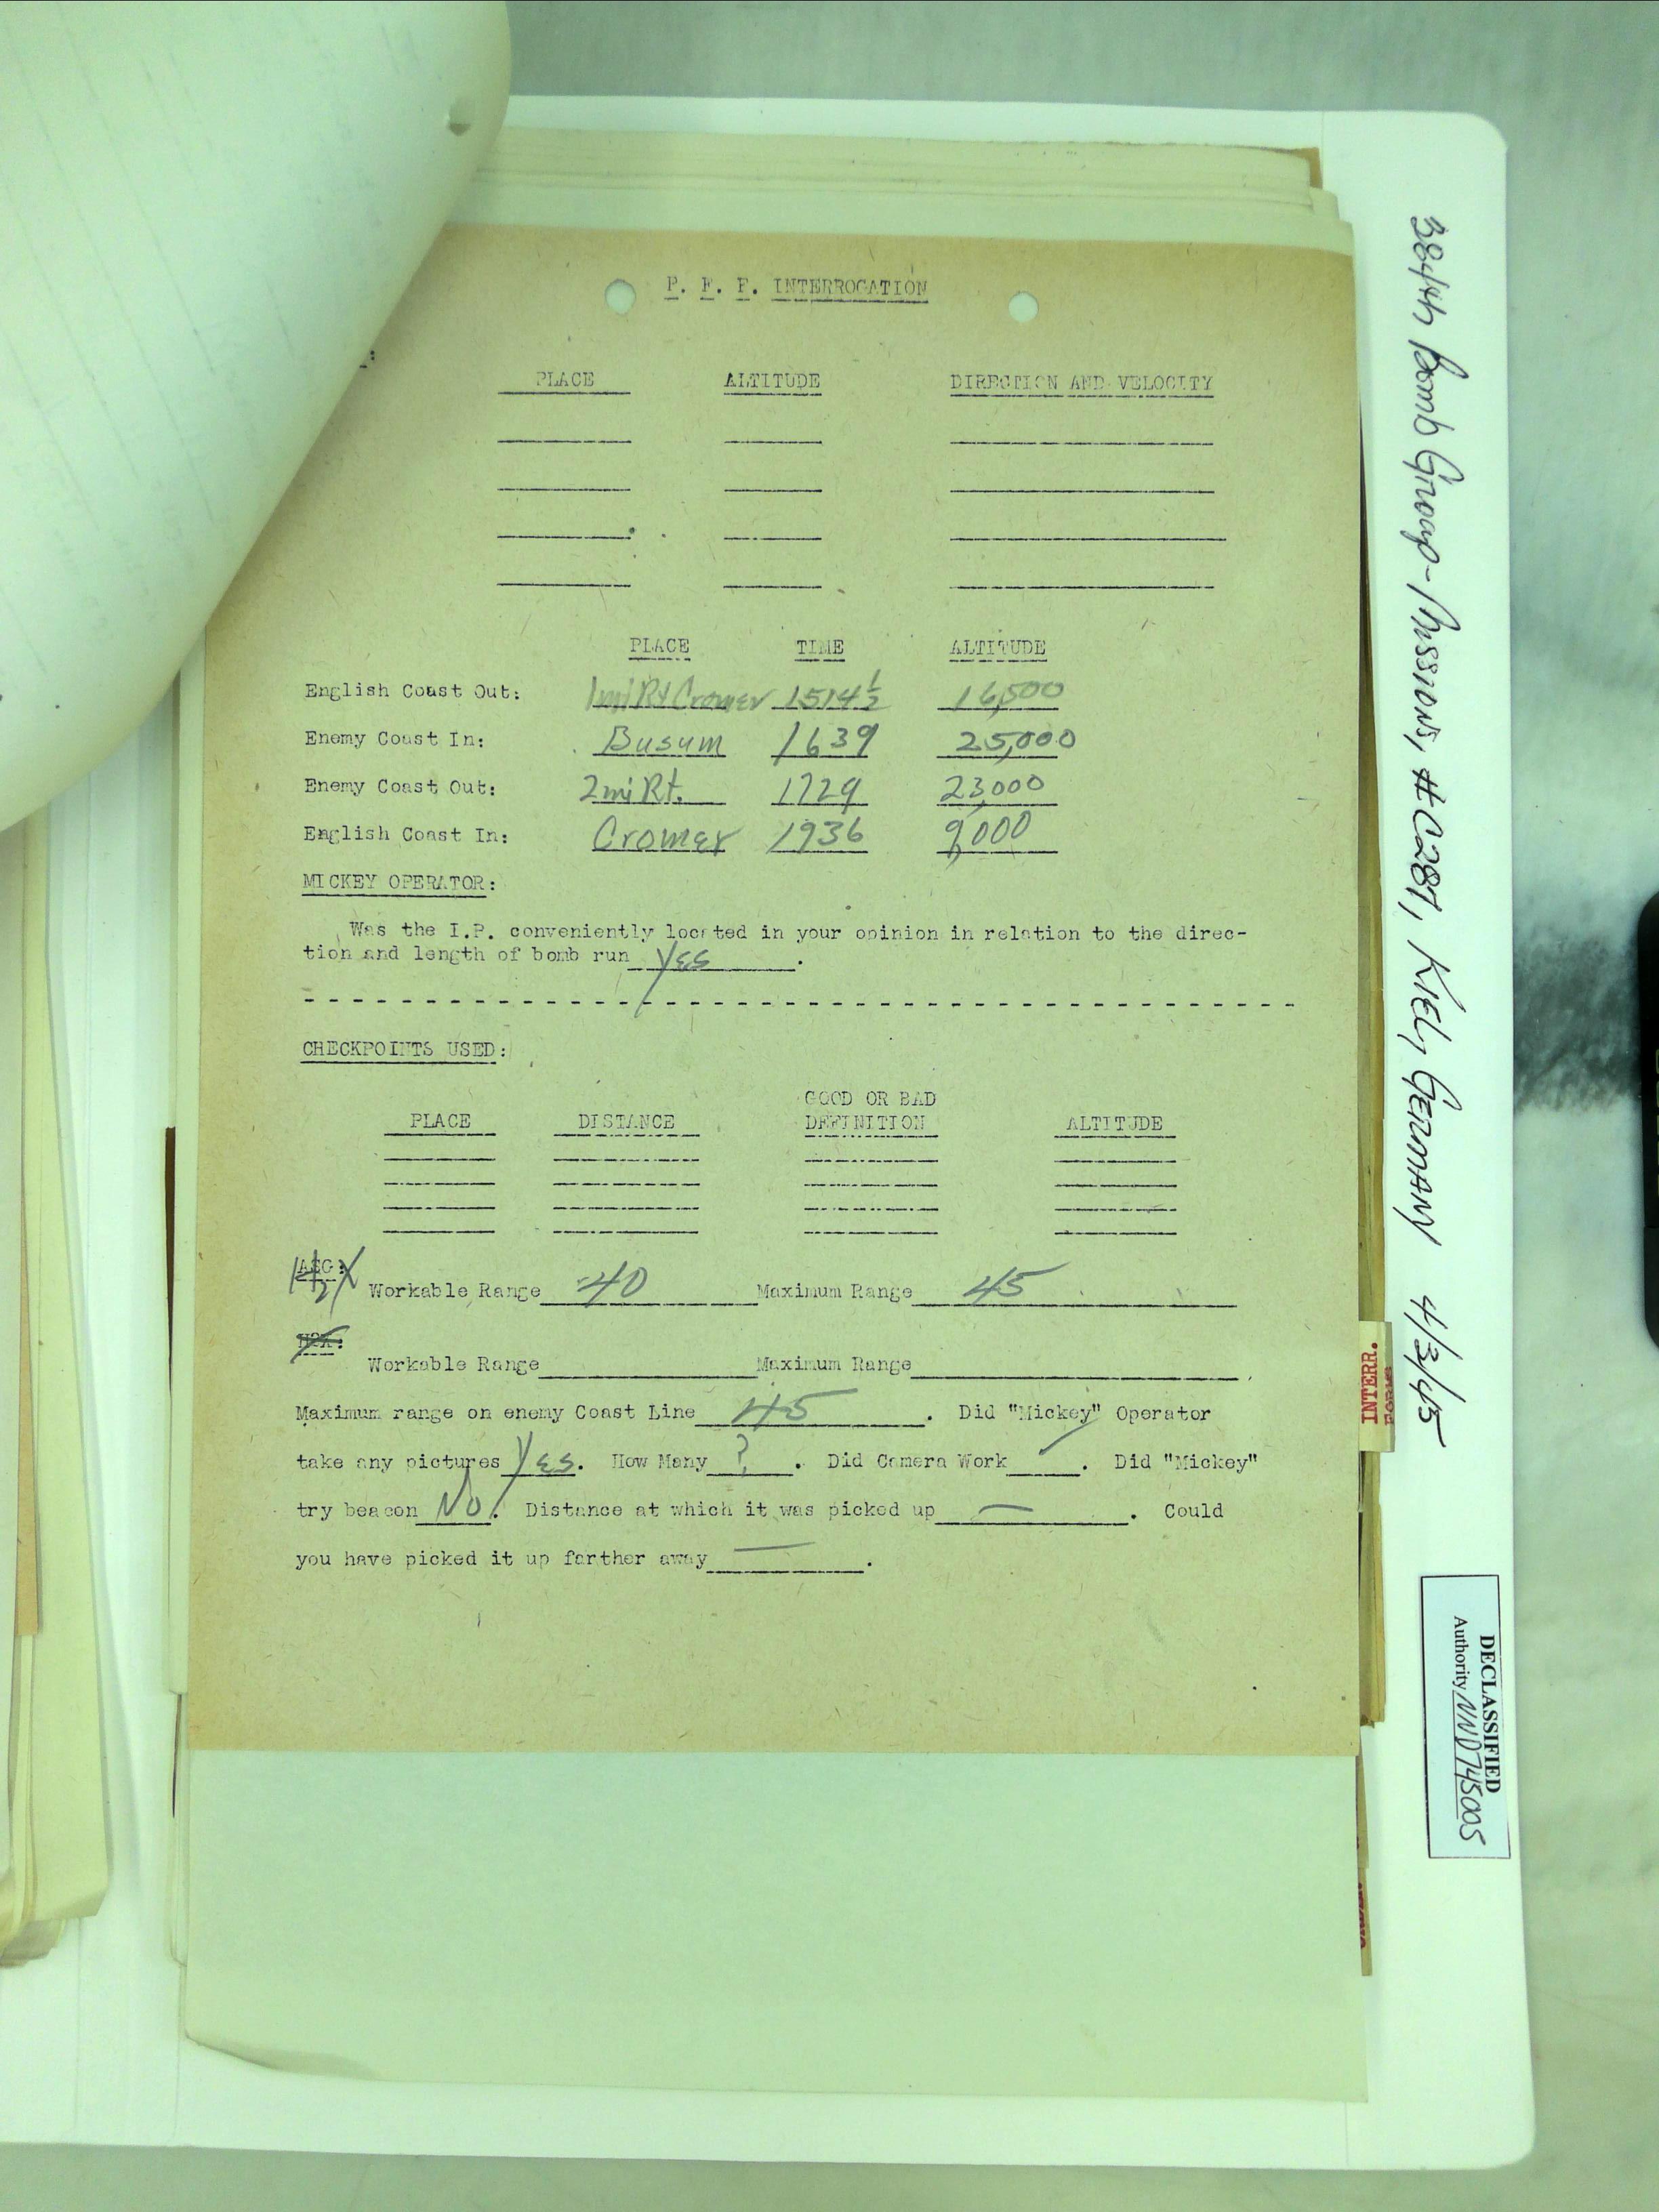 P. F. F. INTERROGATION
:
PLACE ALTITUDE DIRECTION AND VELOCITY
PLACE TIME ALTITUDE
English Coast Out: 1 mi Rt Cromer 1514½ 16,500
Enemy Coast In: Busum 1639 25,000
Enemy Coast Out: 2 mi Rt. 1729 23,000
English Coast In: Cromer 1936 9,000
MICKEY OPERATOR:
Was the I.P. conveniently located in your opinion in relation to the direc-
tion and length of bomb run Yes .
CHECKPOINTS USED:
GOOD OR BAD
PLACE DISTANCE DEFINITION ALTITUDE
H2X
Workable Range 40 Maximum Range 45
Workable Range Maximum Range
Maximum range on enemy Coast Line 45 . Did "Mickey" Operator
take any pictures Yes. How Many ? . Did Camera Work ✓ . Did "Mickey"
try beacon No. Distance at which it was picked up — . Could
you have picked it up farther away — .
384th Bomb Group - Missions, #C281, KIEL, GERMANY 4/3/45
INTERR.
Forms
DECLASSIFIED
Authority NND745005